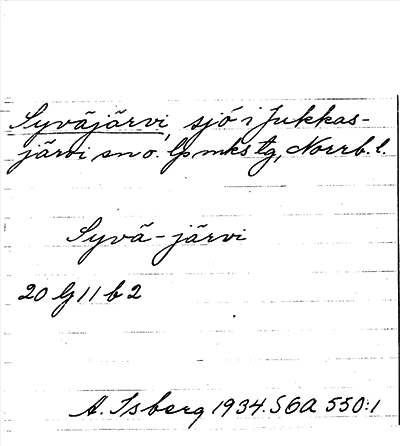 Syväjärvi, sjö i Jukkas-
järvi sn o. lpmks tg, Norrb. l.
Syvä-järvi
20 G 11 b 2
A. Isberg 1934. SGA 550:1